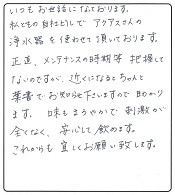 いつもお世話になっております。
私どもの自社ビルで アクアスさんの
浄水器を使わせて頂いております。
正直、メンテナンスの時期等 把握して
ないのですが、近くになるとちゃんと
葉書でお知らせ下さいますので 助かり
ます。 味もまろやかで 刺激が
全くなく、安心して飲めます。
これからも 宜しくお願い致します。